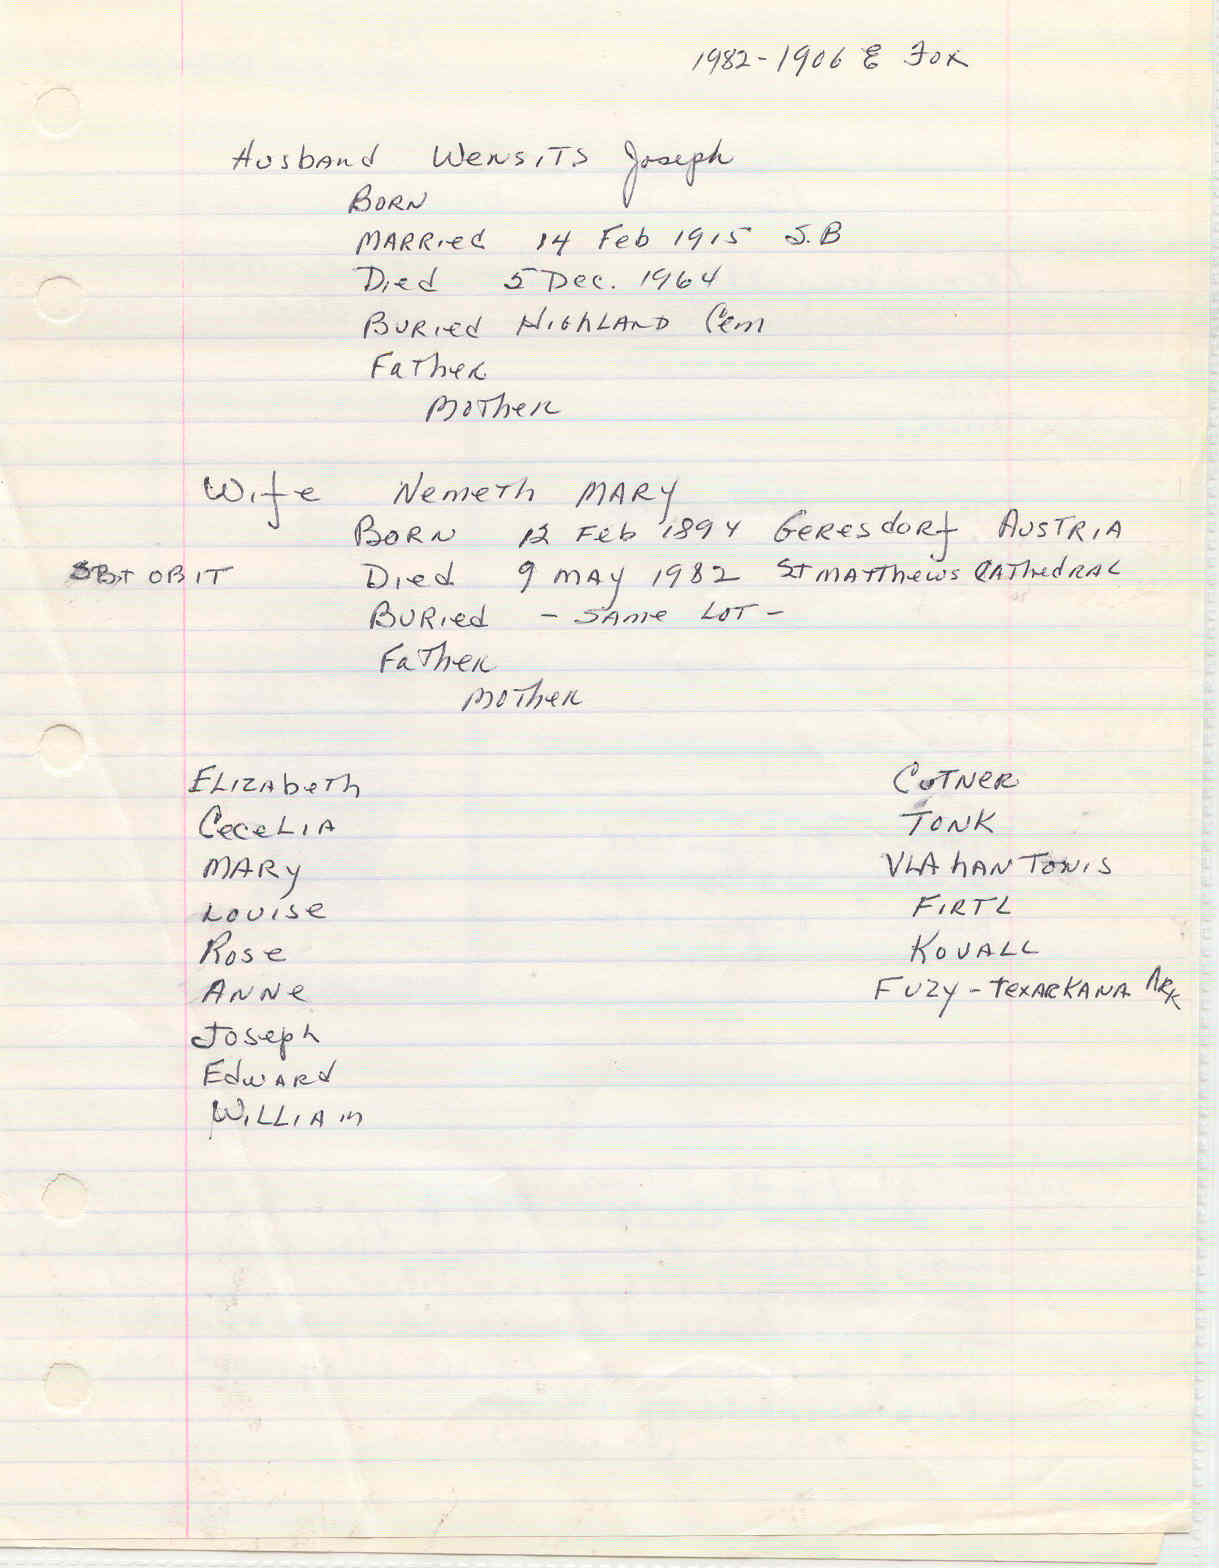 1982-1906 E Fox
Husband Wensits Joseph
Born
Married 14 Feb 1915 S.B
Died 5 Dec. 1964
Buried Highland Cem
Father
Mother
Wife Nemeth Mary
Born Feb 1894 Geresdorf Austria
SBT OBIT Died 9 May 1982 St Matthews Cathedral
Buried - Same Lot -
Father
Mother
Elizabeth Cotner
Cecelia Tonk
Mary Vlahantonis
Louise Firtl
Rose Kovall
Anne Fuzy - Texarkana Ark
Joseph
Edward
William